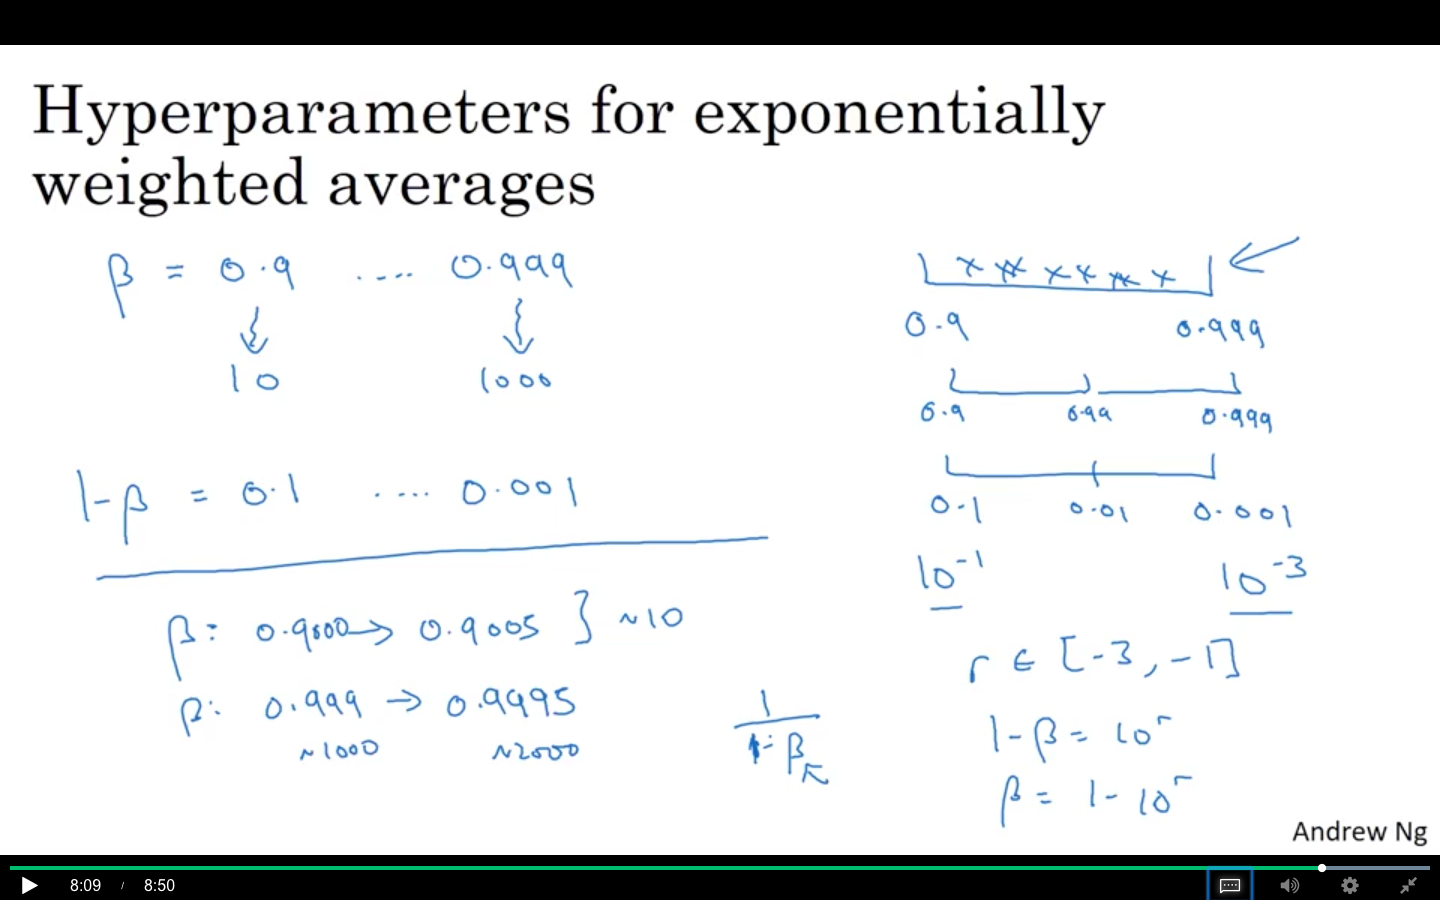 Hyperparameters for exponentially
weighted averages
β = 0.9 .... 0.999
10 1000
1-β = 0.1 .... 0.001
β: 0.9000 → 0.9005 } ~10
β: 0.999 → 0.9995
~1000 ~2000
1
1-β
0.9 0.999
0.9 0.99 0.999
0.1 0.01 0.001
10⁻¹ 10⁻³
r ∈ [-3, -1]
1-β = 10ʳ
β = 1-10ʳ
Andrew Ng
8:09 / 8:50